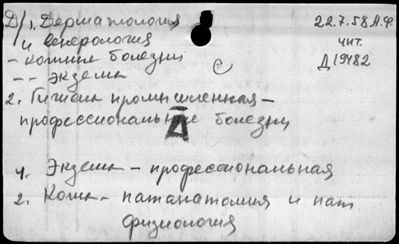 Д/1. Дерматология
и венерология
- кожные болезни
-- экзема
2. Гигиена промышленная -
профессиональные болезни
Д
ч. Экзема - профессиональная
2. Кожа - патанатомия и пат
физиология
22.7.58 А.Ф.
чит.
Д 19482